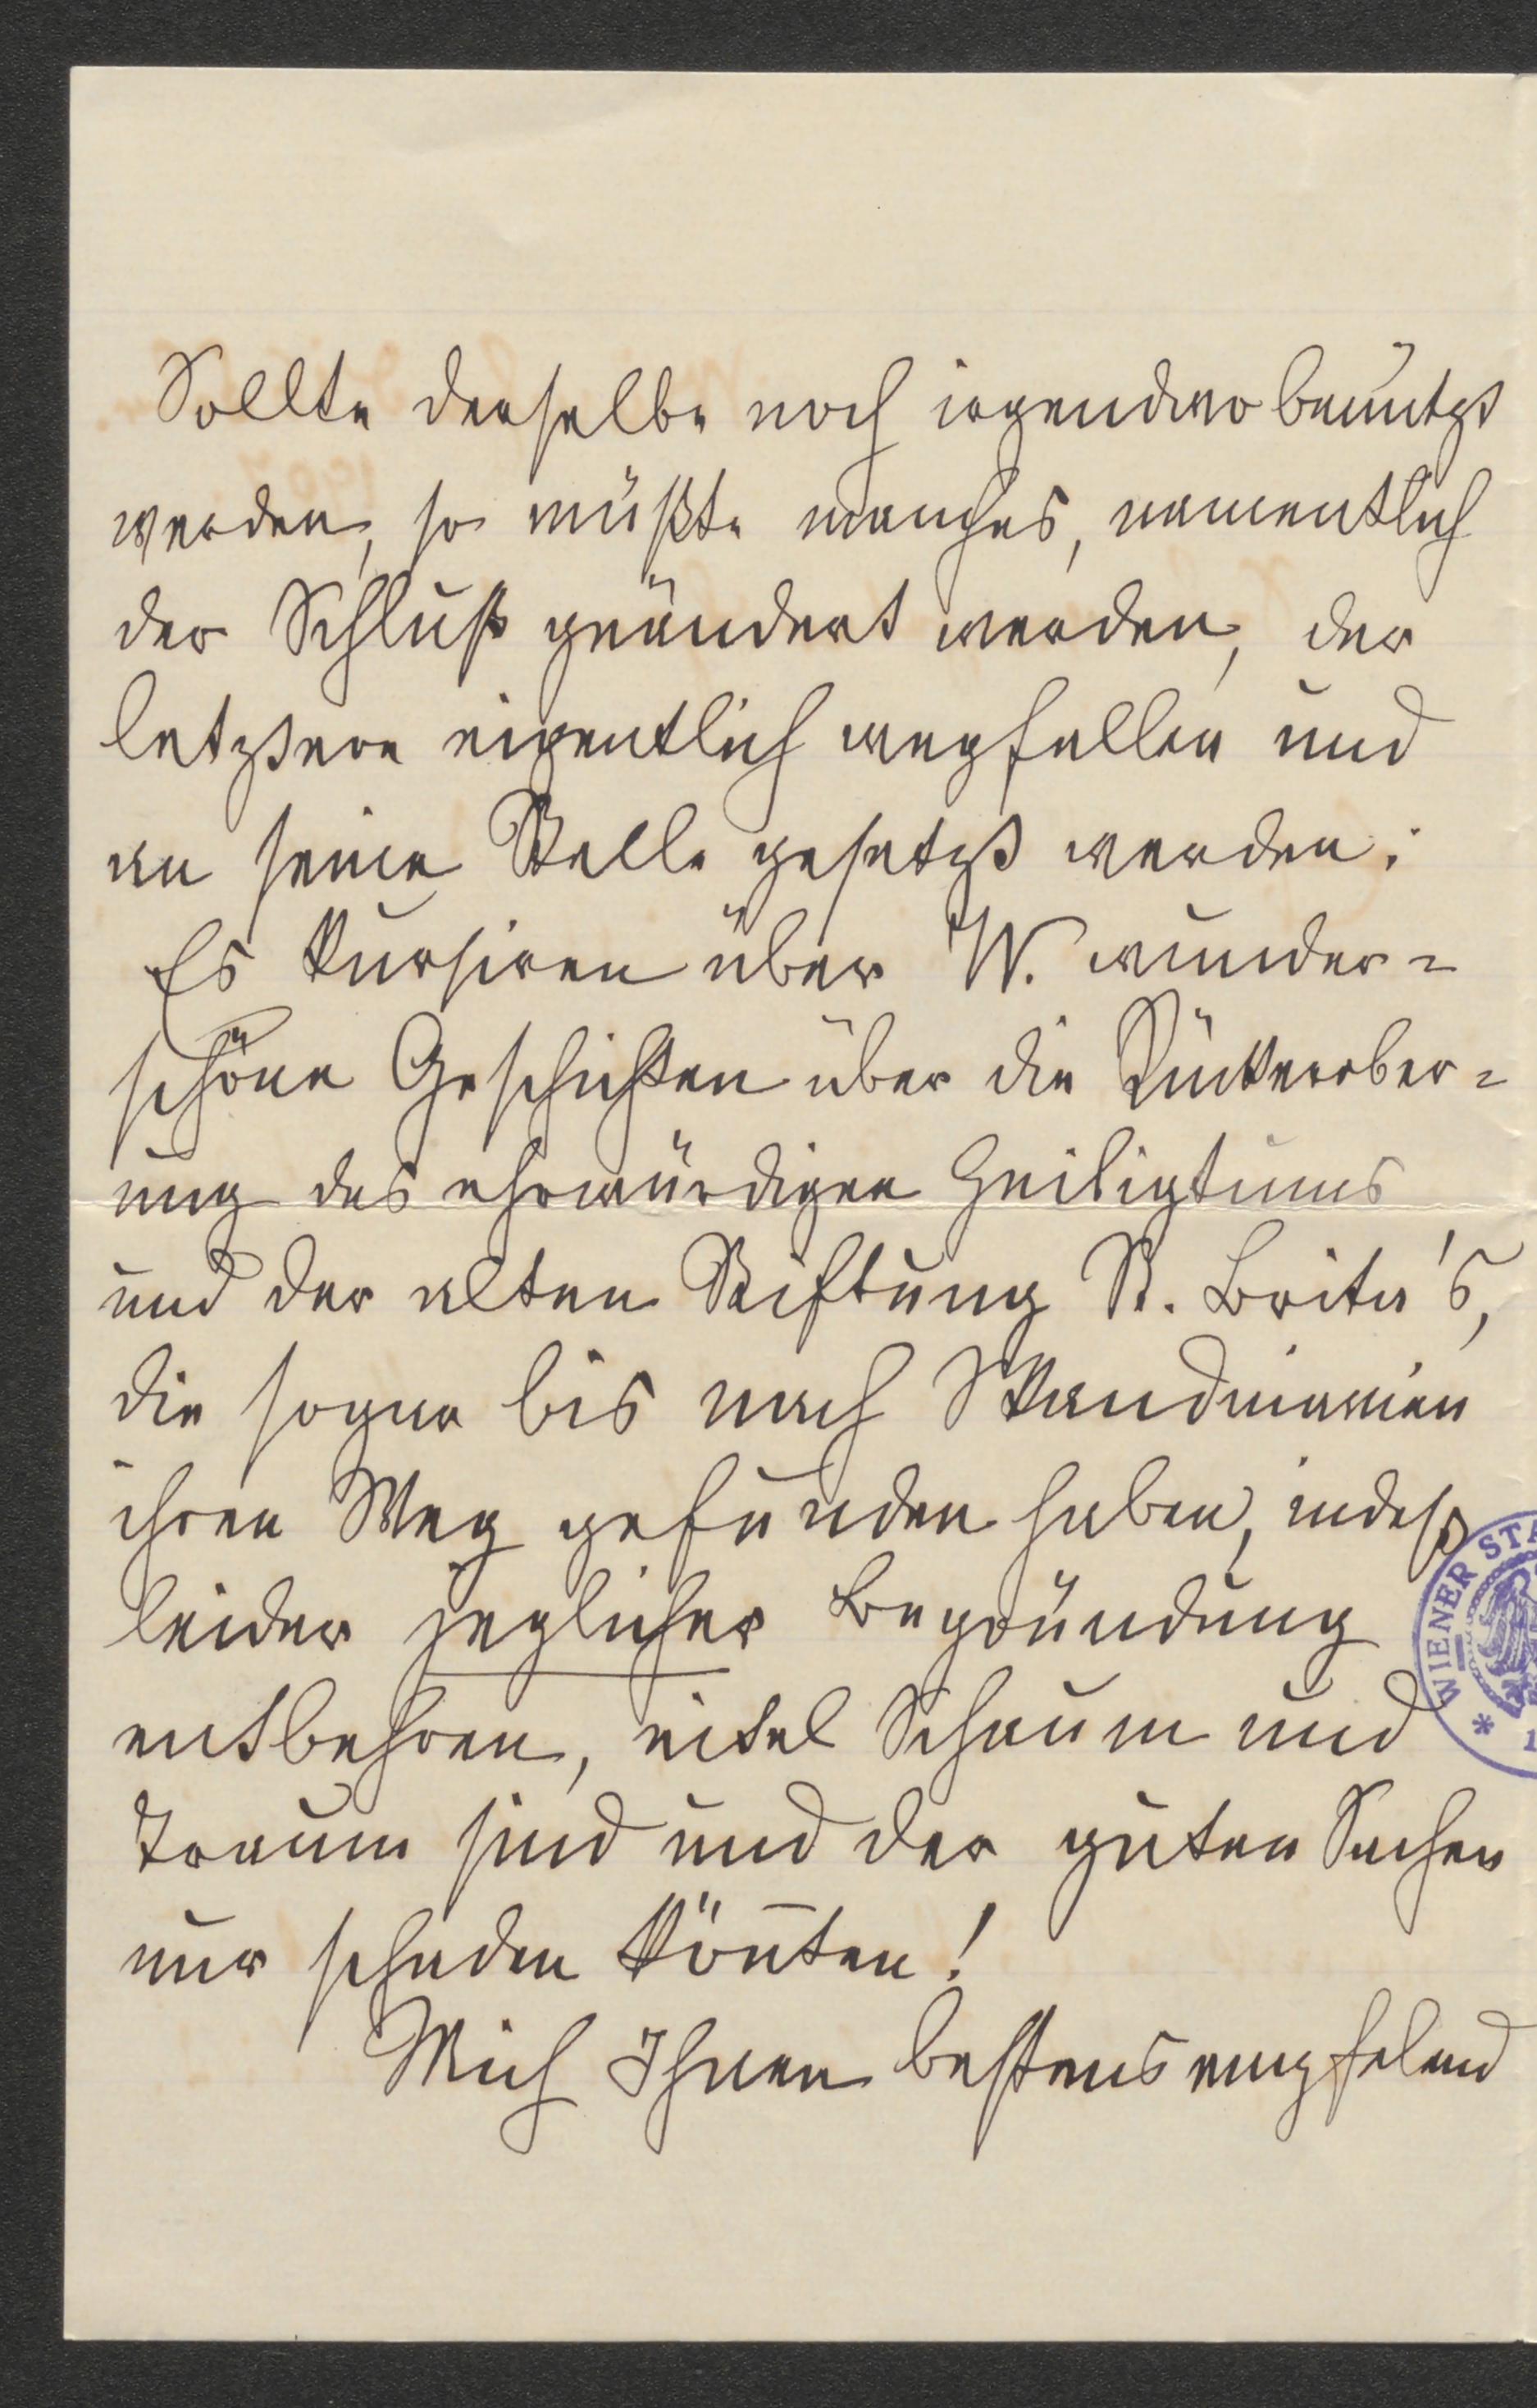 Sollte derselbe noch irgendwo benützt
werden, so müßte manches, namentlich
der Schluß geändert werden, der
letztere eigentlich wegfallen und
an seine Stelle gesetzt werden:
Es kursiren über W. wunder=
schöne Geschichten über die Rückerober=
ung des ehrwürdigen Heiligtums
und der alten Stiftung St. Brita's,
die sogar bis nach Skandinavien
ihren Weg gefunden haben, indeß
leider jeglicher Begründung
entbehren, eitel Schaum und
Traum sind und der guten Sachen
nur schaden kön̄ten!
Mich Ihnen bestens empfelend
WIENER STA
* 1